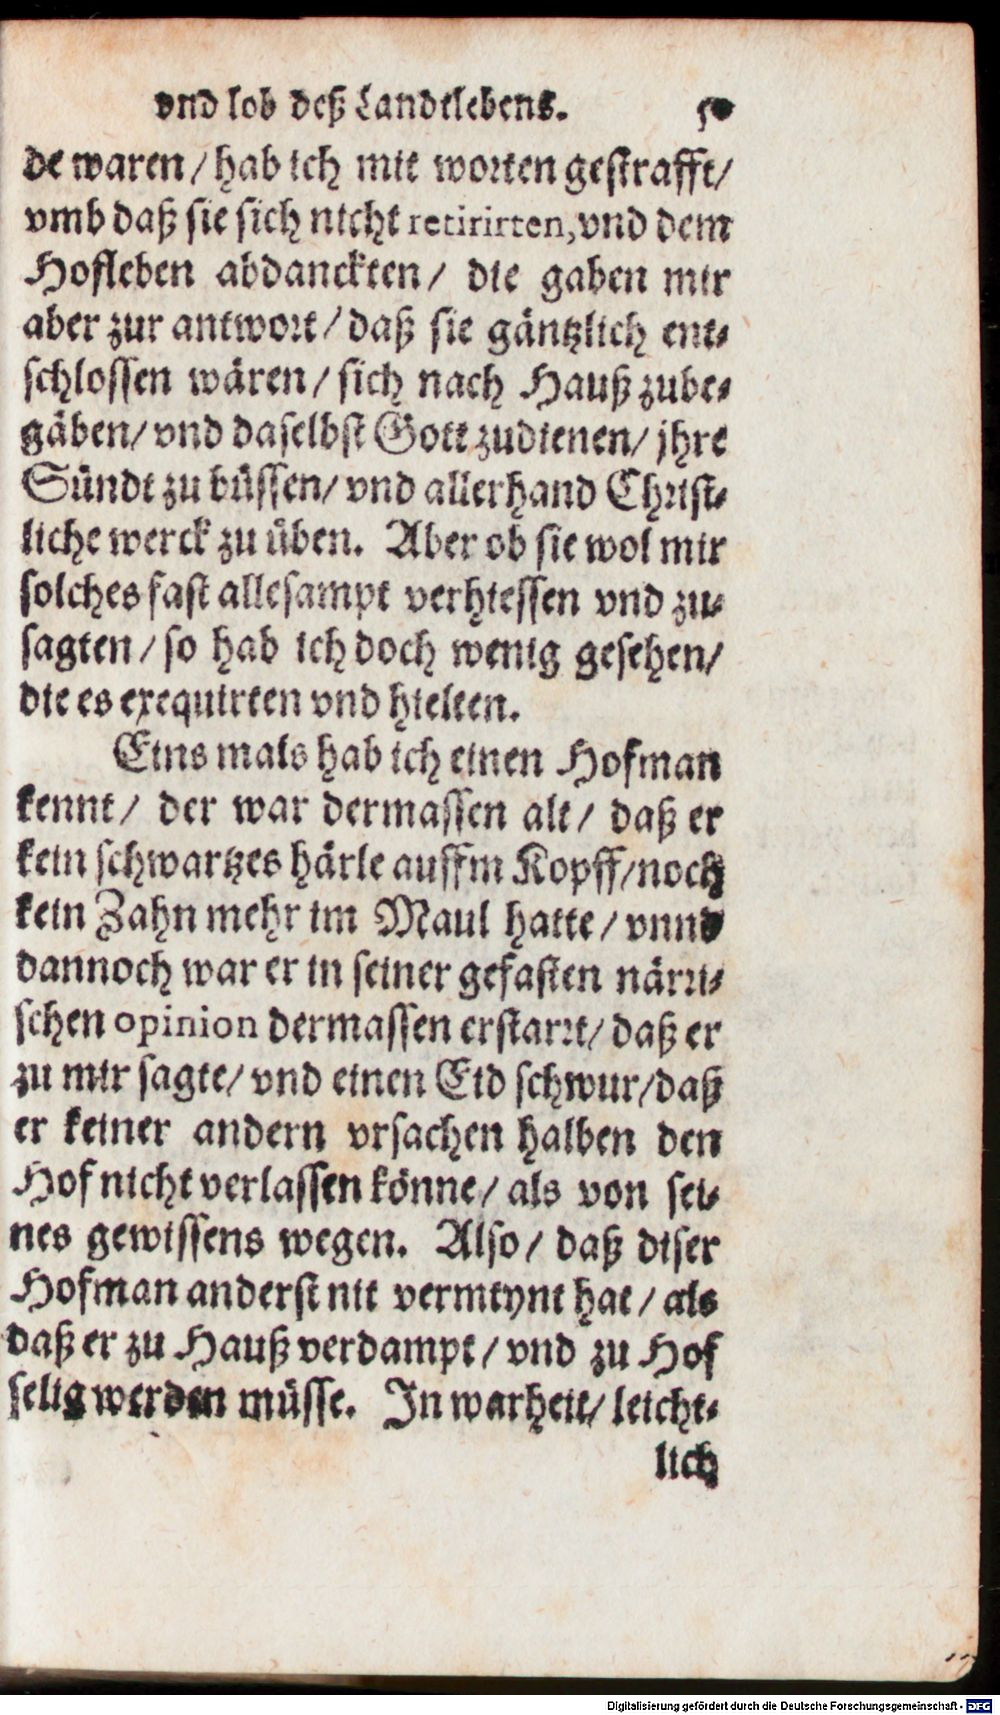 vnd lob deß Landtlebens. 50
de waren / hab ich mit worten gestrafft /
vmb daß sie sich nicht retirirten, vnd dem
Hofleben abdanckten / die gaben mir
aber zur antwort / daß sie gäntzlich ent-
schlossen wären / sich nach Hauß zube-
gäben / vnd daselbst Gott zudienen / jhre
Sündt zu büssen / vnd allerhand Christ-
liche werck zu üben. Aber ob sie wol mir
solches fast allesampt verhiessen vnd zu-
sagten / so hab ich doch wenig gesehen /
die es exequirten vnd hielten.
Eins mals hab ich einen Hofman
kennt / der war dermassen alt / daß er
kein schwartzes härle auffm Kopff / noch
kein Zahn mehr im Maul hatte / vnnd
dannoch war er in seiner gefasten närri-
schen opinion dermassen erstarrt / daß er
zu mir sagte / vnd einen Eid schwur / daß
er keiner andern vrsachen halben den
Hof nicht verlassen könne / als von sei-
nes gewissens wegen. Also / daß diser
Hofman anderst nit vermeynt hat / als
daß er zu Hauß verdampt / vnd zu Hof
selig werden müsse. In warheit / leicht-
lich
Digitalisierung gefördert durch die Deutsche Forschungsgemeinschaft - DFG